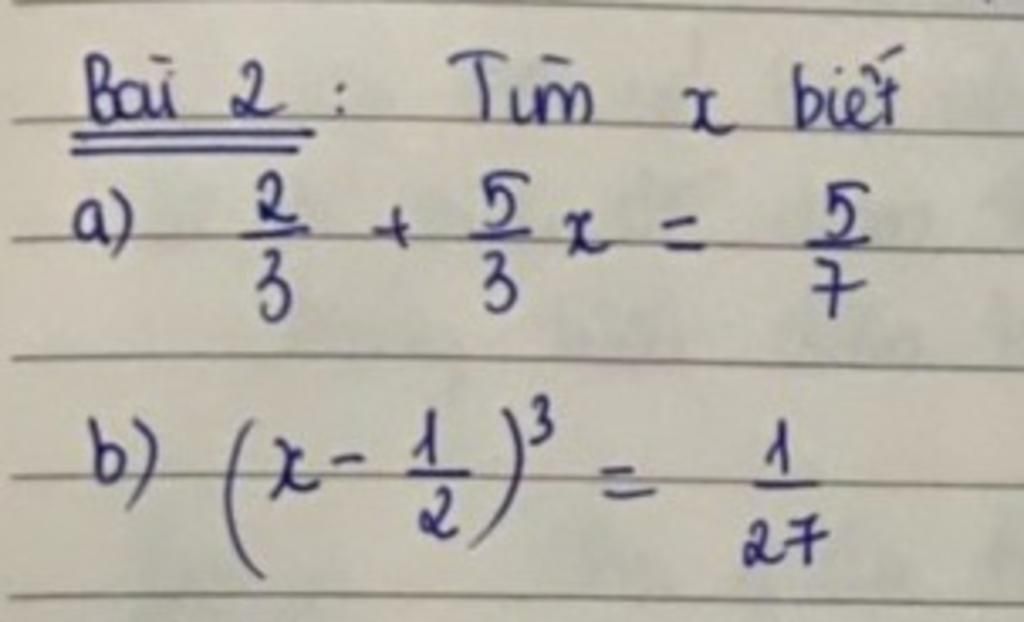 Bài 2 : Tìm x biết
a) 2/3 + 5/3 x = 5/7
b) (x - 1/2)^3 = 1/27